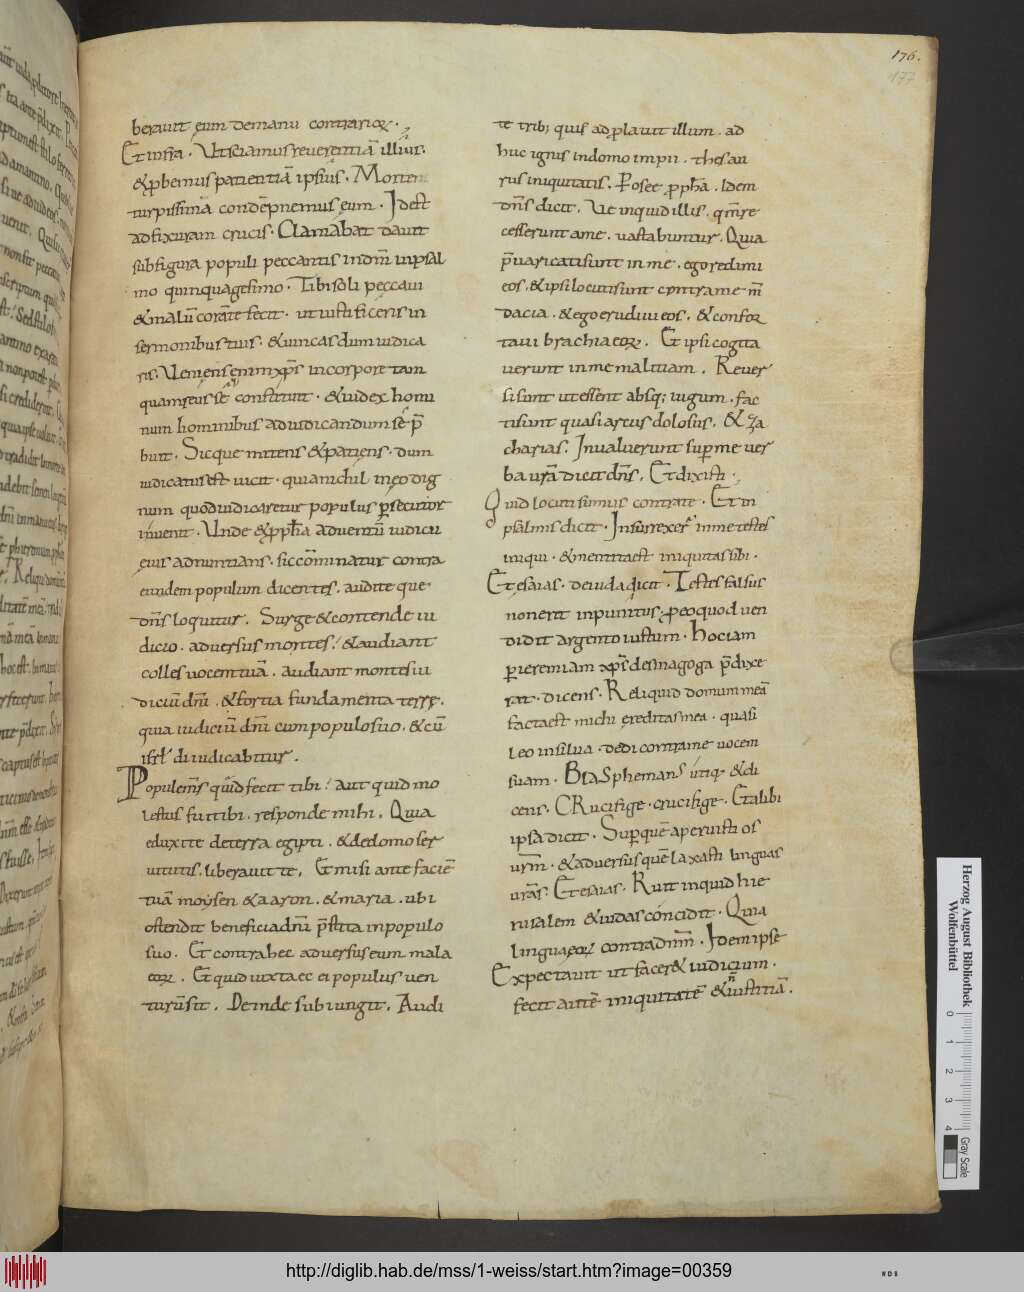 176.
177
berauit eum demanu contrarioꝝ.
Et infra. Ut sciamus reuerentiā illius.
& ꝓbemus patientiā ipsius. Mortem
turpissimā condēpnemus eum. Id est
adfixuram crucis. Clamabat dauit
subfigura populi peccantis indm̄ inpsal
mo quinquagesimo. Tibi soli peccaui
& malū corāte feci. ut iustificeris in
sermonibus tuis. & uincas dum iudica
ris. Veniens enim xp̄s incorpore tam
quam reus sē constituit. & iudex homi
num hominibus adiudicandum sē p̄
buit. Sicque mitens & patiens. dum
iudicatus est uicit. quia nichil in eo dig
num quod iudicaretur populus ꝑsecutor
inuenit. Unde & ꝓph̄a aduentū iudicii
eius adnuntians. sic cōminatur contra
eundem populum dicentes. audite que
dn̄s loquitur. Surge & contende iu
dicio. aduersus montes. & audiant
colles uocem tuā. audiant montes iu
diciū dn̄i. & fortia fundamenta terrę.
quia iudiciū dn̄i cum populo suo. & cū
isrł diiudicabitur.
Popule m̄s quid feci tibi? aut quid mo
lestus fui tibi. responde mihi. Quia
eduxi te deterra egipti. & dedomo ser
uitutis. liberaui te. Et misi ante faciē
tuā moysen & aaron. & maria. ubi
ostendit beneficia dn̄i p̄stita inpopulo
suo. Et contra hec aduersus eum mala
eoꝝ. Et quid iuxta ec ei populus uen
turū sit. Deinde subiungit. Audi
te trib; quis adꝓlauit illum. ad
huc ignis indomo impii. thesau
rus iniquitatis. Per osee ꝓph̄a. Idem
dn̄s dicit. Ve inquid illis. qm̄ re
cesserunt ame. uastabuntur. Quia
p̄uaricati sunt in me. ego redimi
eos. & ipsi locuti sunt contra me m̄
dacia. & ego erudiui eos. & confor
taui brachia eoꝝ. Et ipsi cogita
uerunt in me malitiam. Reuer
si sunt ut essent absq; iugum. fac
ti sunt quasi arcus dolosus. & za
charias. Inualuerunt sup̱ me uer
ba urā dicit dn̄s. Et dixisti.
Quid locuti sumus contra te. Et in
psalmis dicit. Insurrexer̄ in me testes
iniqui. & mentita est iniquitas sibi.
Et esaias. de iuda dicit. Testes falsus
non erit inpunitus. ꝓ eo quod uen
didit argento iustum. Hoc iam
ꝑ ieremiam xp̄s desinagoga p̄dixe
rat. dicens. Reliquid domum meā
facta est michi ereditas mea. quasi
leo insilua. dedi contra me uocem
suam. Blasphemans utiq; & di
cens. Crucifige. crucifige. Et alibi
ipsa dicit. Sup̱ quē aperuisti os
urm̄. & aduersus quē laxasti linguas
urās. Et esaias. Ruit inquid hie
rusalem & iudas concidit. Quia
lingua eoꝝ contra dn̄m. Idem ipse
Expectauit ut facer& iudicium.
fecit autē iniquitatē & ñ iustitiā.
Herzog August Bibliothek
Wolfenbüttel
0 1 2 3 4
Gray Scale
http://diglib.hab.de/mss/1-weiss/start.htm?image=00359